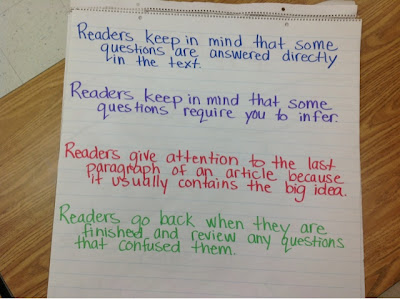 Readers keep in mind that some
questions are answered directly
in the text.
Readers keep in mind that some
questions require you to infer.
Readers give attention to the last
paragraph of an article because
it usually contains the big idea.
Readers go back when they are
finished and review any questions
that confused them.